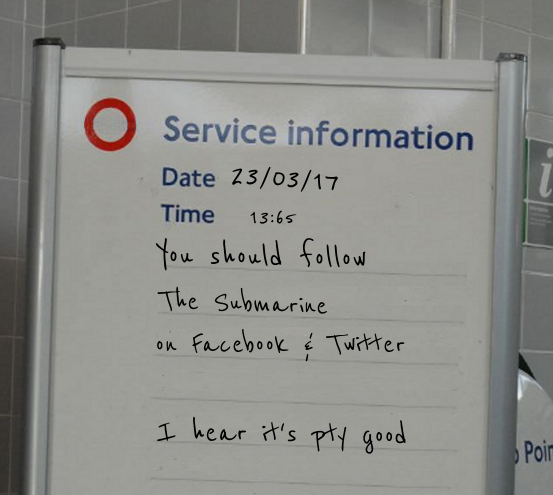 Service information
Date 23/03/17
Time 13:65
You should follow
The Submarine
on Facebook & Twitter
I hear it's pty good
i
Poin